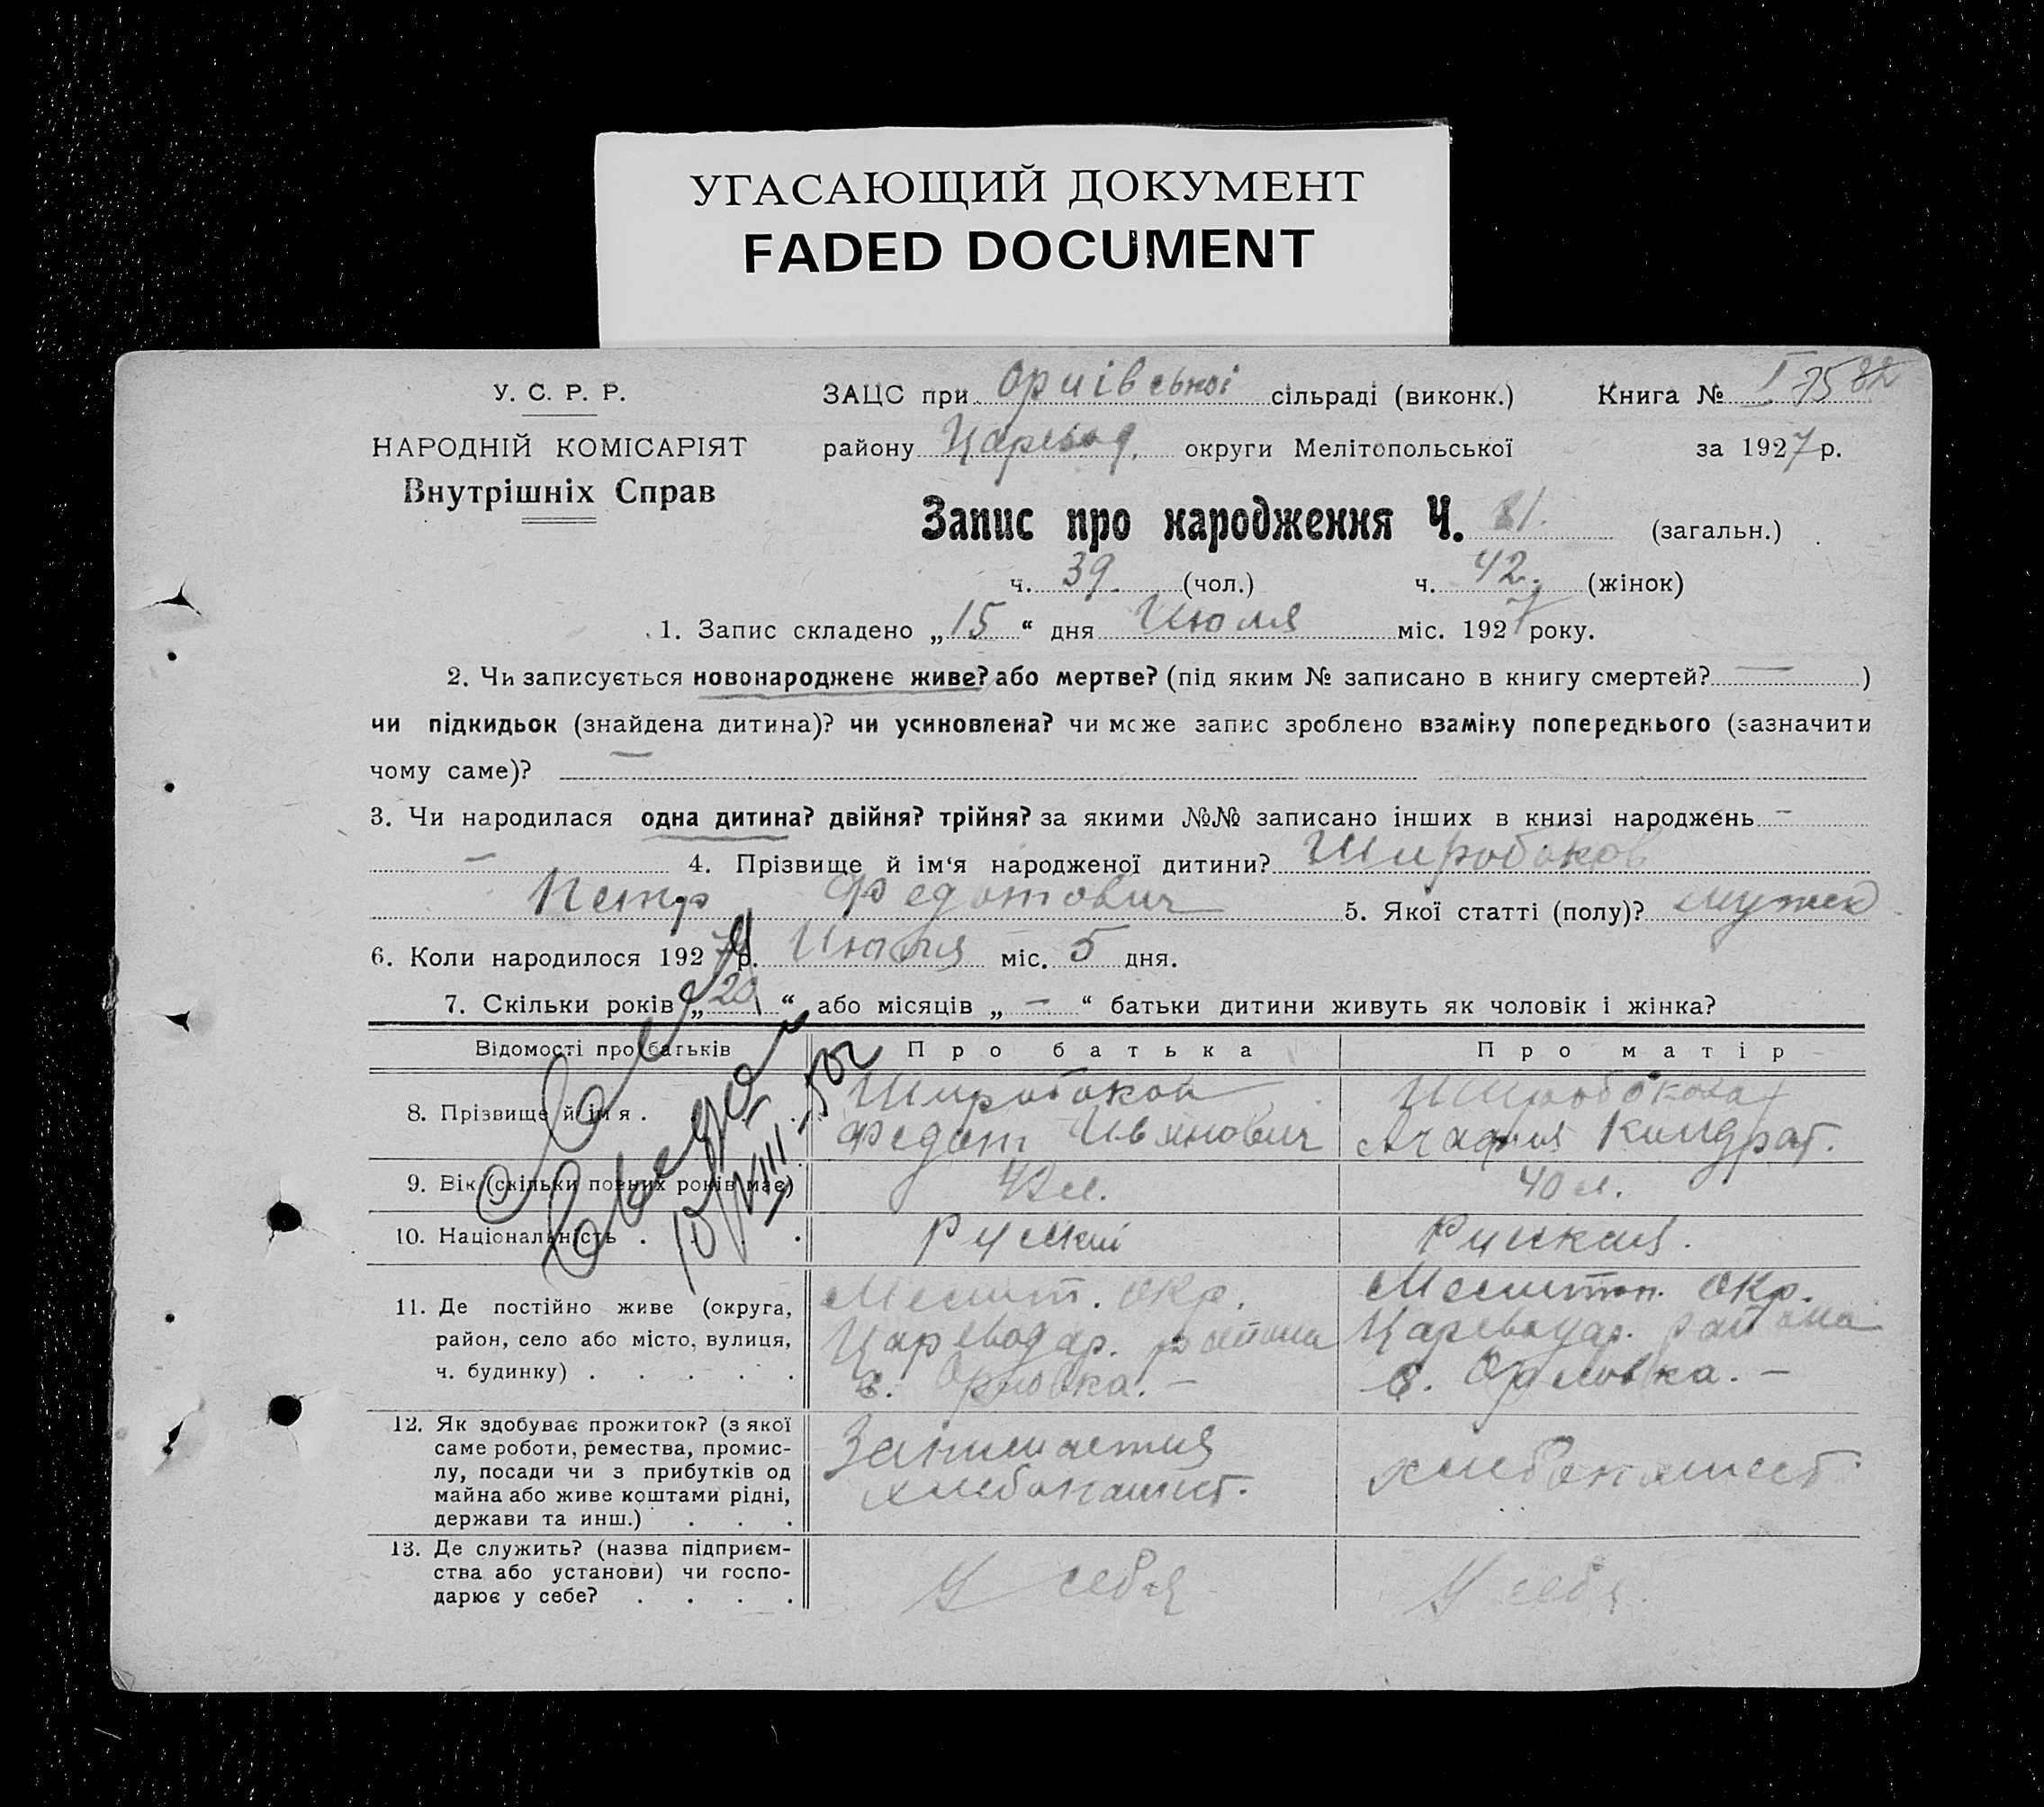 УГАСАЮЩИЙ ДОКУМЕНТ
FADED DOCUMENT
У. С. Р. Р.
НАРОДНІЙ КОМІСАРІЯТ
Внутрішніх Справ
ЗАЦС при Орлівської сільраді (виконк.) Книга № I 75 82
району Царевод. округи Мелітопольської за 1927 р.
Запис про народження Ч. 81. (загальн.)
ч. 39. (чол.) ч. 42. (жінок)
1. Запис складено „15“ дня Июля міс. 1927 року.
2. Чи записується новонароджене живе? або мертве? (під яким № записано в книгу смертей? — )
чи підкидьок (знайдена дитина)? чи усиновлена? чи може запис зроблено взаміну попереднього (зазначити
чому саме)? —
3. Чи народилася одна дитина? двійня? трійня? за якими №№ записано інших в книзі народжень —
— 4. Прізвище й ім‘я народженої дитини? Широбоков
Петр Федотович 5. Якої статті (полу)? мужск
6. Коли народилося 1927 р. Июля міс. 5 дня.
7. Скільки років „20“ або місяців „—“ батьки дитини живуть як чоловік і жінка?
Відомості про батьків Про батька Про матір
8. Прізвище й ім‘я . Широбоков Широбокова
Федот Иванович Агафия Кондрат.
9. Вік (скільки повних років має) 42 л. 40 л.
10. Національність . Руский Руская.
11. Де постійно живе (округа,
район, село або місто, вулиця,
ч. будинку) . . . . .
Мелит. окр.
Цареводар. района
с. Орловка. —
Мелитоп. окр.
Цареводар. района
с. Орловка. —
12. Як здобуває прожиток? (з якої
саме роботи, ремества, промис-
лу, посади чи з прибутків од
майна або живе коштами рідні,
держави та инш.) . . .
Занимается
хлебопашест.
хлебопашест
13. Де служить? (назва підприєм-
ства або установи) чи госпо-
дарює у себе? . . . .
У себя
У себя.